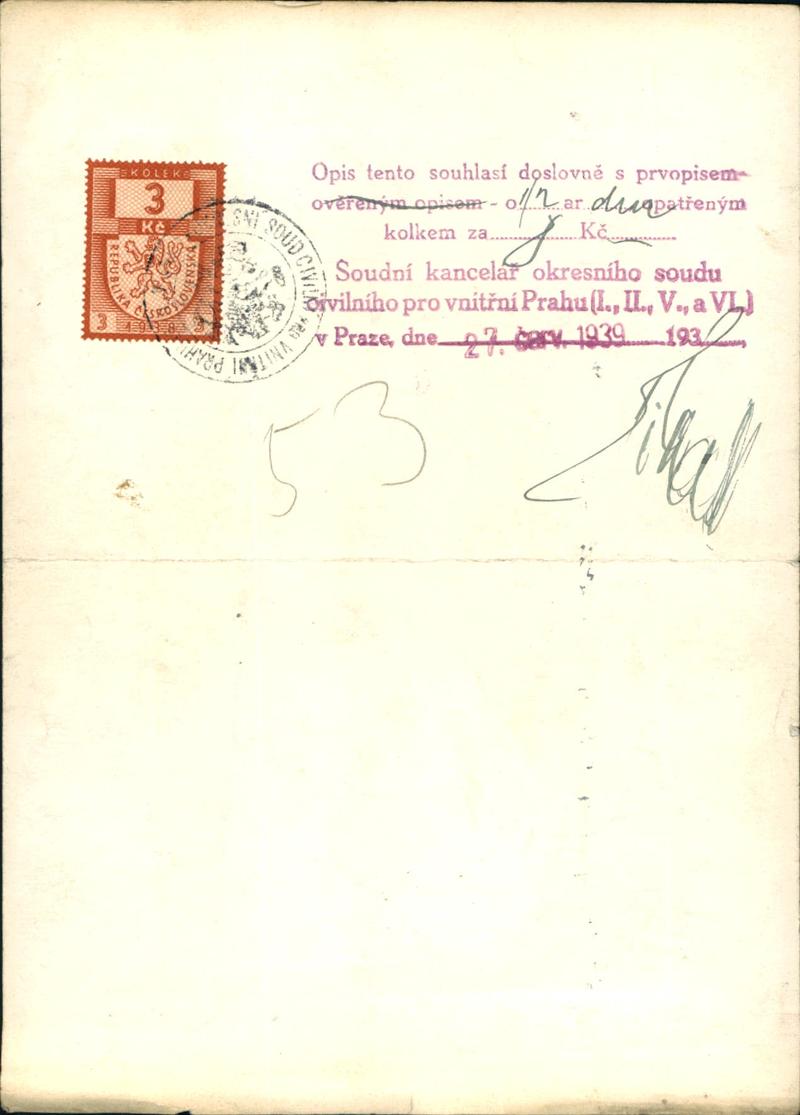 KOLEK
3
Kč
REPUBLIKA ČESKOSLOVENSKÁ
3 1938
SOUD CIVILNÍ PRO VNITŘNÍ PRAHU
Opis tento souhlasí doslovně s prvopisem-
ověřeným opisem - o 1/2 ar opatřeným
kolkem za Kč
Soudní kancelář okresního soudu
civilního pro vnitřní Prahu (I., II., V., a VI.)
v Praze, dne 27. červ. 1939 193
53